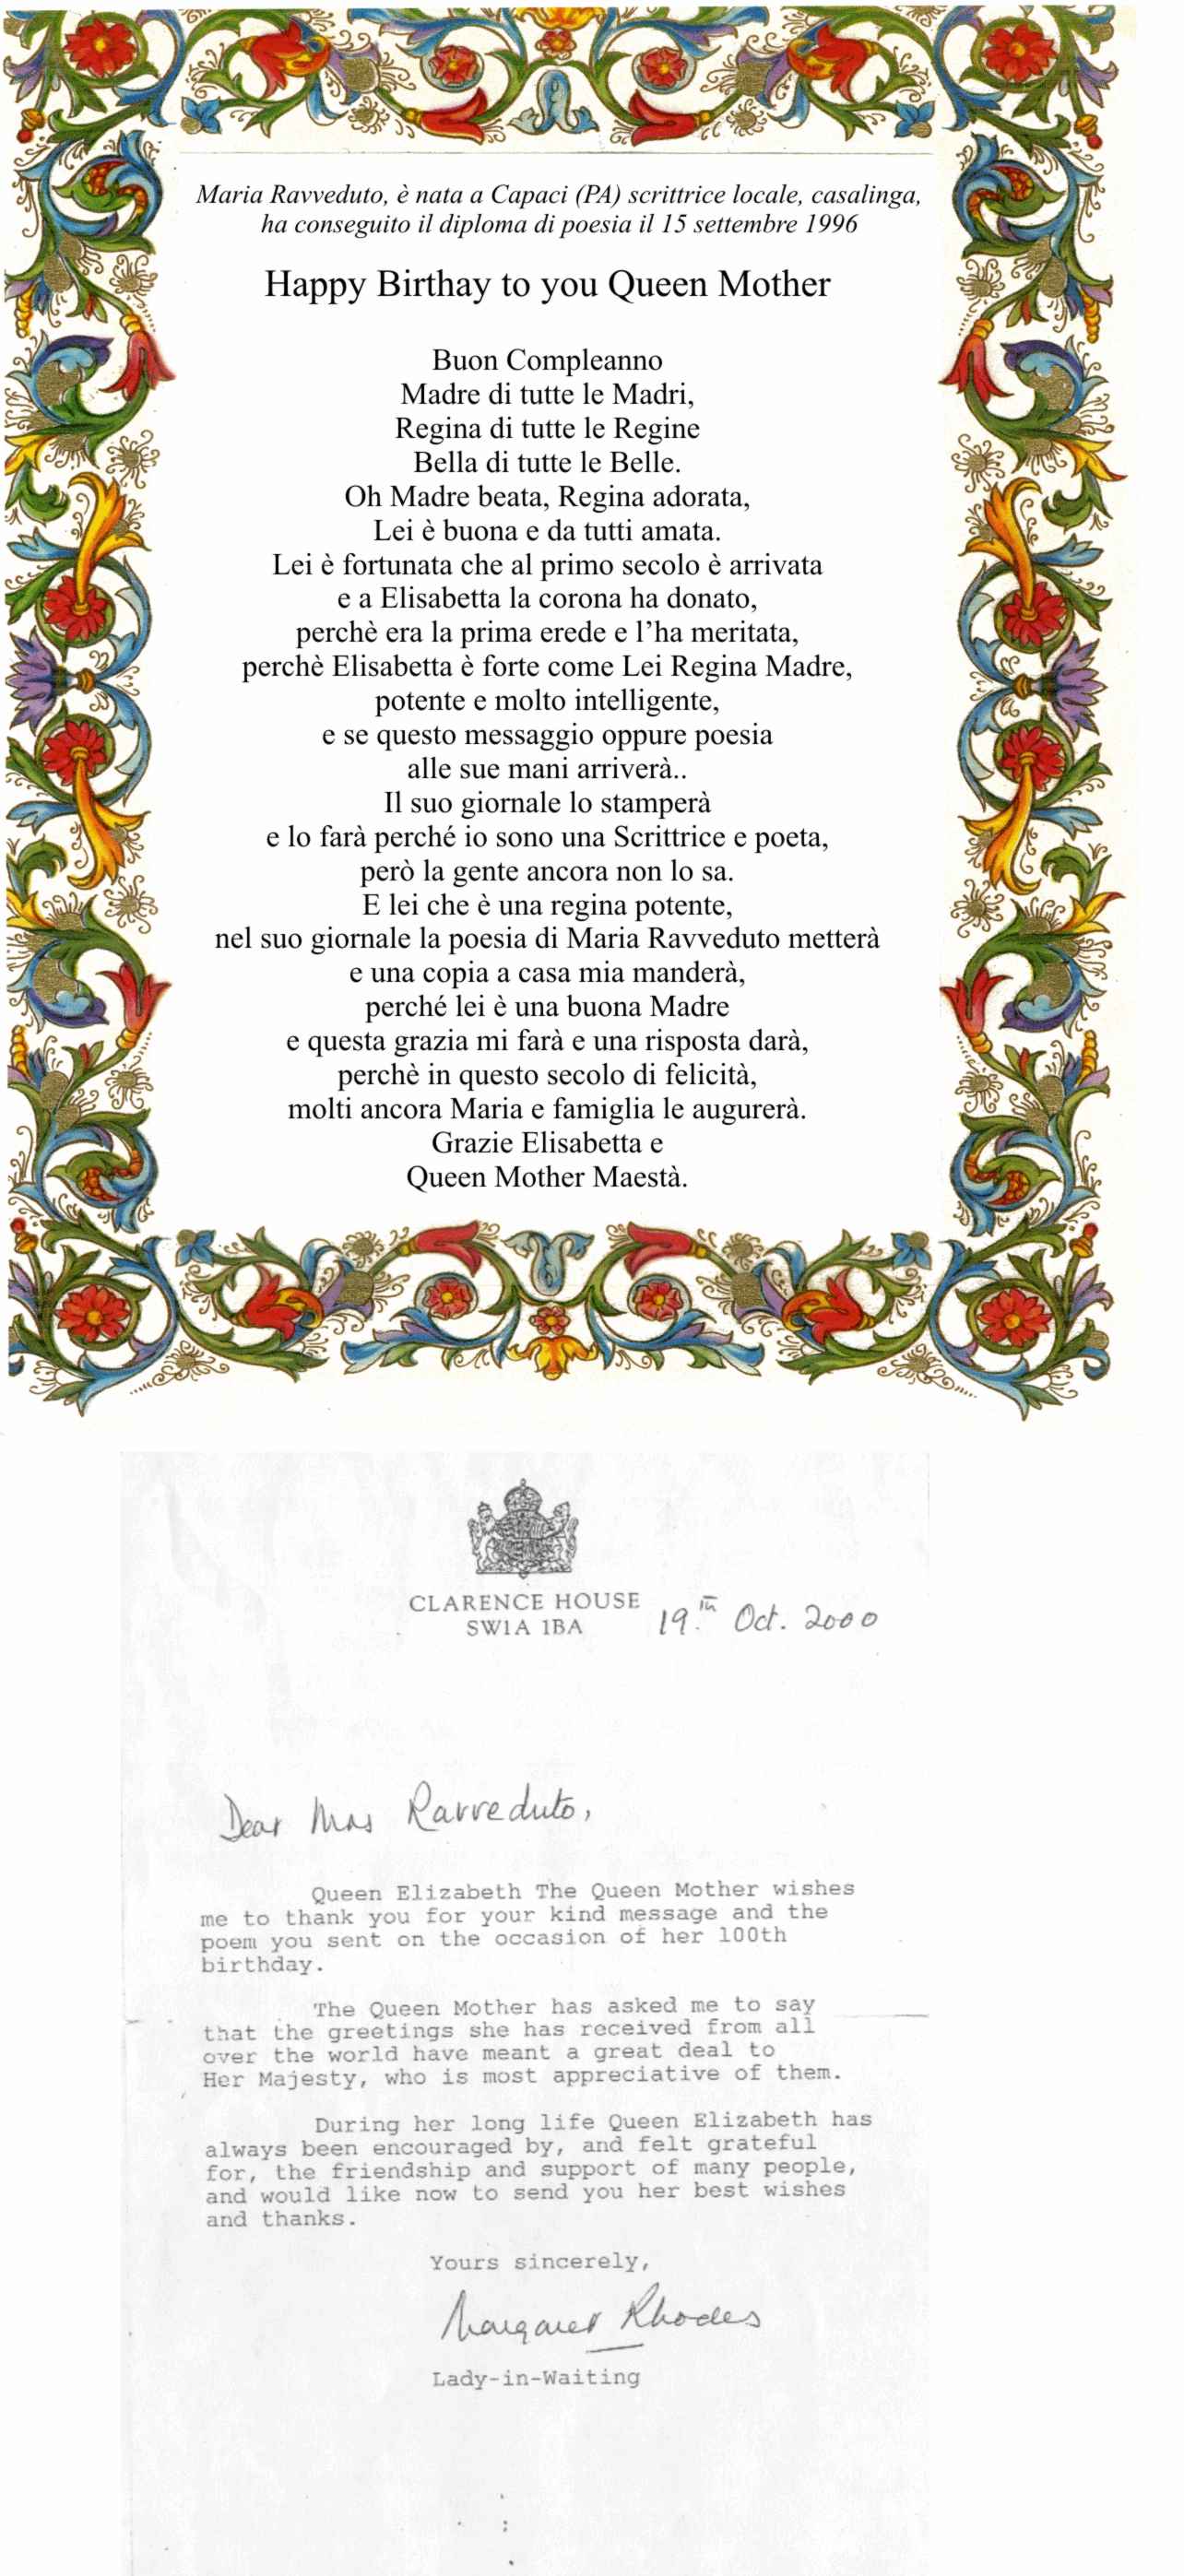 Maria Ravveduto, è nata a Capaci (PA) scrittrice locale, casalinga,
ha conseguito il diploma di poesia il 15 settembre 1996
Happy Birthay to you Queen Mother
Buon Compleanno
Madre di tutte le Madri,
Regina di tutte le Regine
Bella di tutte le Belle.
Oh Madre beata, Regina adorata,
Lei è buona e da tutti amata.
Lei è fortunata che al primo secolo è arrivata
e a Elisabetta la corona ha donato,
perchè era la prima erede e l’ha meritata,
perchè Elisabetta è forte come Lei Regina Madre,
potente e molto intelligente,
e se questo messaggio oppure poesia
alle sue mani arriverà..
Il suo giornale lo stamperà
e lo farà perché io sono una Scrittrice e poeta,
però la gente ancora non lo sa.
E lei che è una regina potente,
nel suo giornale la poesia di Maria Ravveduto metterà
e una copia a casa mia manderà,
perché lei è una buona Madre
e questa grazia mi farà e una risposta darà,
perchè in questo secolo di felicità,
molti ancora Maria e famiglia le augurerà.
Grazie Elisabetta e
Queen Mother Maestà.
CLARENCE HOUSE
SW1A 1BA
19th Oct. 2000
Dear Mrs Ravveduto,
Queen Elizabeth The Queen Mother wishes
me to thank you for your kind message and the
poem you sent on the occasion of her 100th
birthday.
The Queen Mother has asked me to say
that the greetings she has received from all
over the world have meant a great deal to
Her Majesty, who is most appreciative of them.
During her long life Queen Elizabeth has
always been encouraged by, and felt grateful
for, the friendship and support of many people,
and would like now to send you her best wishes
and thanks.
Yours sincerely,
Margaret Rhodes
Lady-in-Waiting